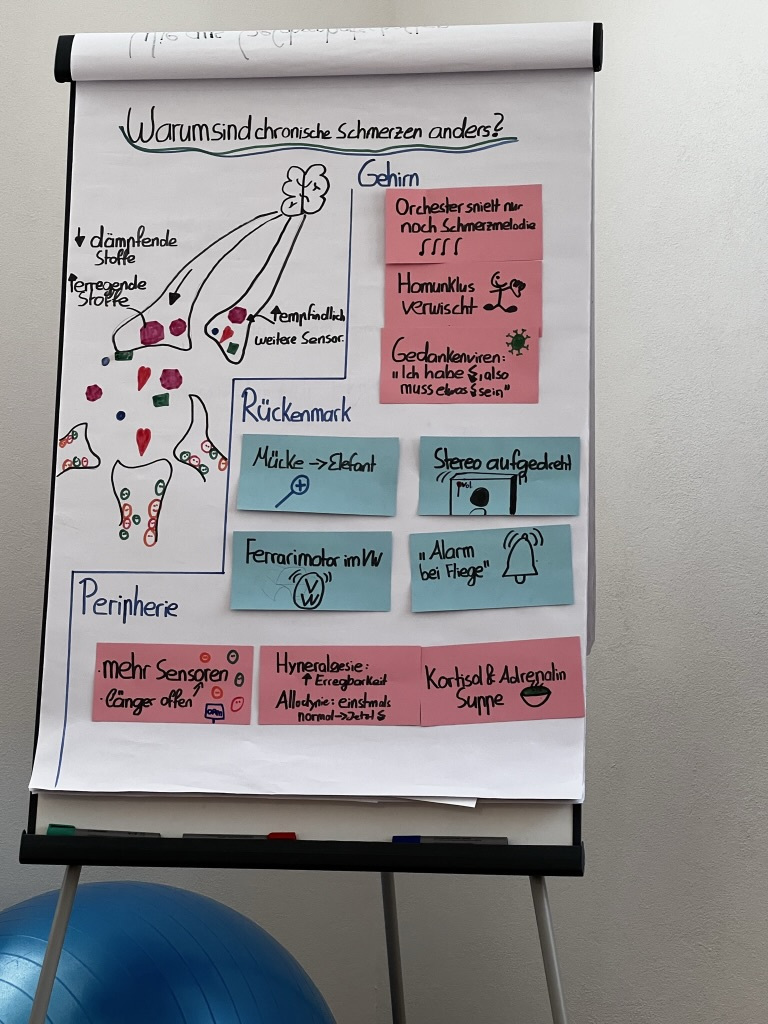 Warum sind chronische Schmerzen anders?
Gehirn
Orchester spielt nur
noch Schmerzmelodie
Homunklus
verwischt
Gedankenviren:
"Ich habe , also
muss etwas sein"
↓ dämpfende
Stoffe
↑ erregende
Stoffe
↑ empfindlich
weitere Sensor.
Rückenmark
Mücke -> Elefant
Stereo aufgedreht
Vol.
Ferrarimotor im VW
VW
"Alarm
bei Fliege"
Peripherie
· mehr Sensoren
· länger offen
Hyperalgesie:
↑ Erregbarkeit
Allodynie: einstmals
normal -> Jetzt
Kortisol & Adrenalin
Suppe